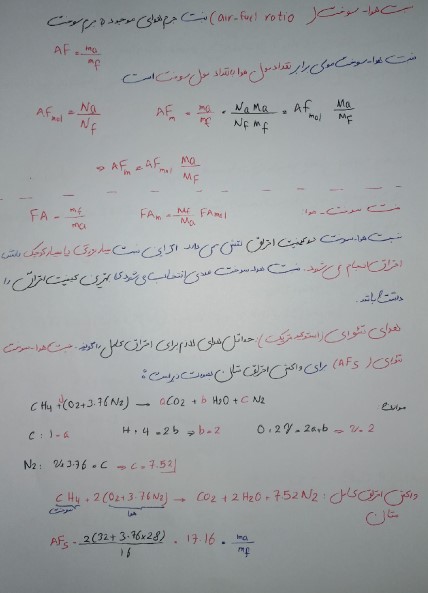 نسبت هوا-سوخت (air-fuel ratio) نسبت جرم هوای موجود به جرم سوخت
AF = ma/mf
نسبت هوا-سوخت مولی برابر تعداد مول هوا به تعداد مول سوخت است
AFmol = Na/Nf AFm = ma/mf = Na Ma/Nf Mf = AFmol Ma/MF
⇒ AFm = AFmol Ma/MF
نسبت سوخت-هوا FA = mf/ma FAm = Mf/Ma FAmol
نسبت هوا-سوخت در کیفیت احتراق نقش مهمی دارد. اگر این نسبت بسیار بزرگ یا بسیار کوچک باشد
احتراق انجام نمی شود. نسبت هوا-سوخت طوری انتخاب می شود که بهترین کیفیت احتراق را
داشته باشد.
هوای تئوری (استوکیومتریک) حداقل هوای لازم برای احتراق کامل را گویند. نسبت هوا-سوخت
تئوری (AFs) برای واکنش احتراق متان بصورت زیر است:
CH4 + γ(O2+3.76N2) → aCO2 + b H2O + C N2
C: 1=a H: 4=2b ⇒ b=2 O: 2γ=2a+b ⇒ γ=2
N2: γ×3.76=C ⇒ C=7.52
واکنش احتراق کامل متان: CH4 + 2(O2+3.76N2) → CO2 + 2H2O + 7.52N2
سوخت هوا
AFs = 2(32+3.76×28)/16 = 17.16 = ma/mf